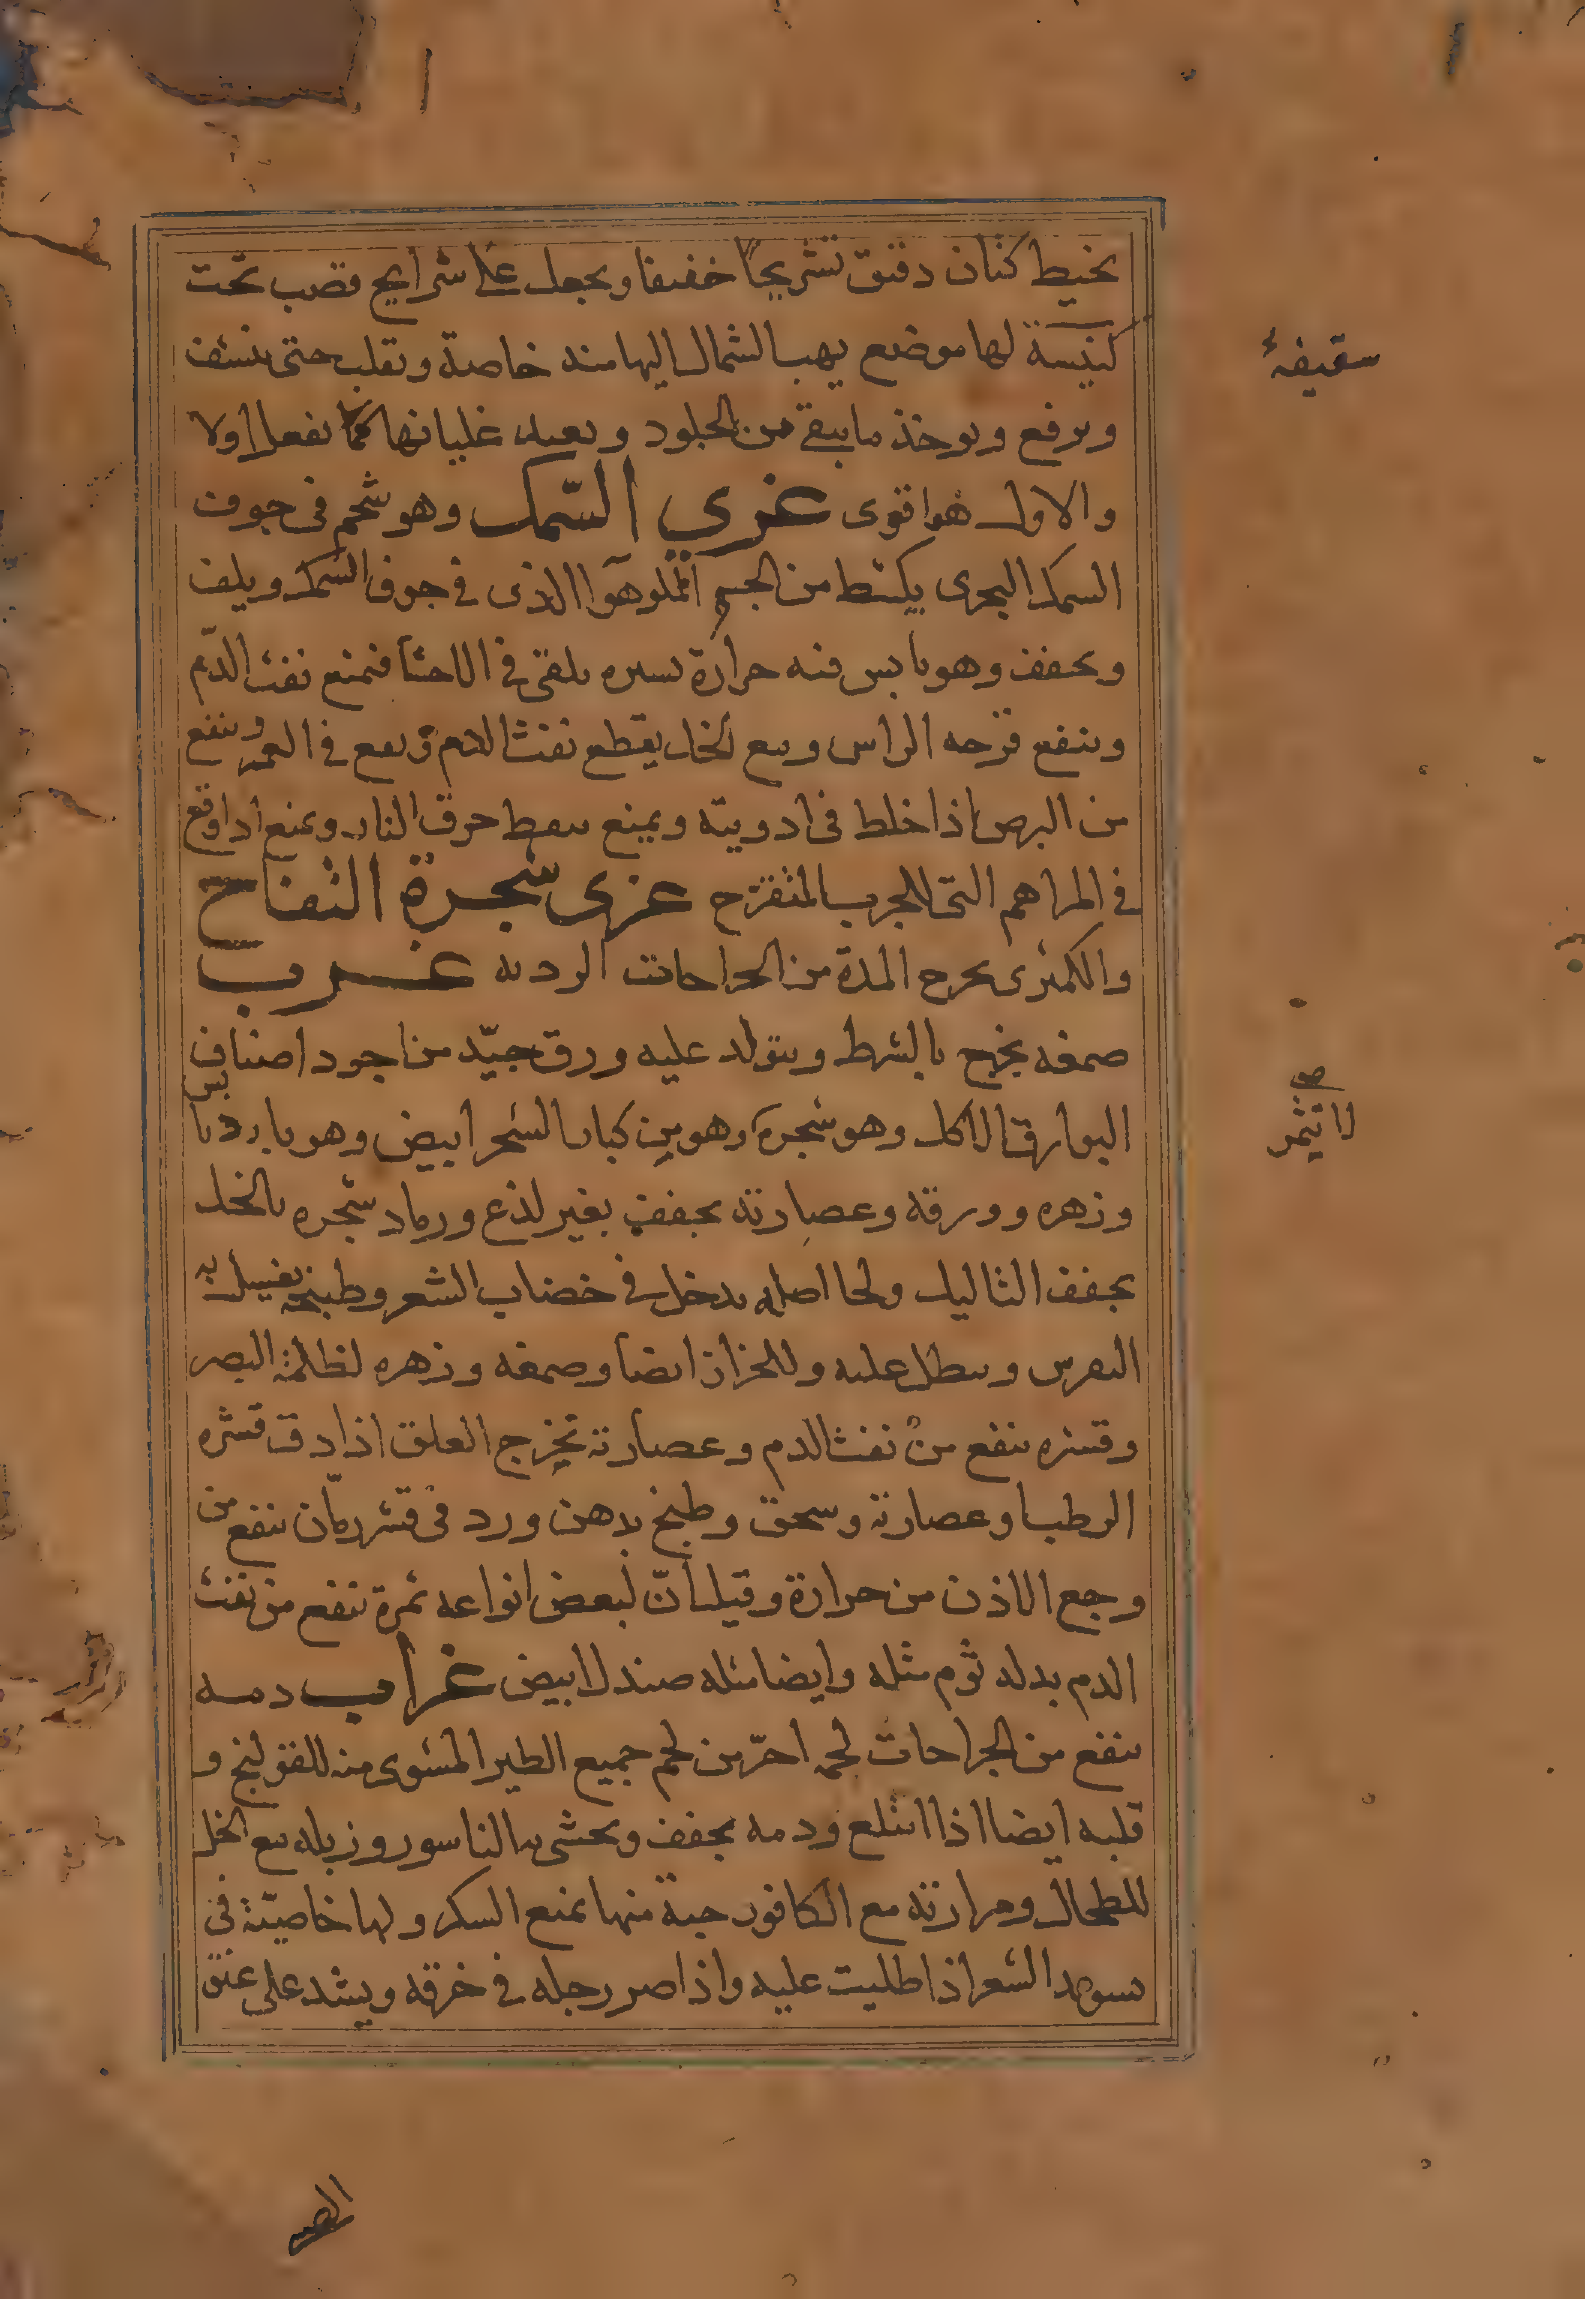 بخيط كتان دقيق تشريحًا خفيفا ويجعل على شرايح قصب تحت
كنيسة لها موضع يهب الشمال اليها منه خاصة وتقلب حتى ينشف
سقيفة
ويرفع ويوخذ ما يبقى من الجلود ويعيد غليانها كما يفعل اولا
والاول هو اقوى غرى السّمك وهو شحم فى جوف
السمك البحرى يكشط من الجسم المملو هوآ الذى فى جوف السمك ويلف
ويجفف وهو يابس فيه حرارة يسيره يلقى فى الاحشا فيمنع نفث الدّم
وينفع قرحه الراس ومع الخل يقطع نفث الدم ويقع فى وينفع
من البرص اذا خلط فى ادويته ويمنع تنفط حرق النار ويمنع اذا وقع
فى المراهم التى للجرب المتقرّح غرى شجرة التفاح
والكمثرى يخرج المدة من الجراحات الرديه غرب
صمغه يخرج بالشرط ويتولد عليه ورق جيّد من اجود اصناف
البوارق الاكل وهو شجرة وهو من كبار الشجر ابيض وهو بارد يابس
لا تثمر صح
وزهره وورقه وعصارته يجفف بغير لذع ورماد شجره بالخل
يجفف الثاليل ولحا اصله يدخل فى خضاب الشعر وطبيخه يغسل به
النقرس وينطل عليه وللحزاز ايضا وصمغه وزهره لظلمة البصر
وقشره ينفع من نفث الدم وعصارته تخرج العلق اذا دق قشره
الرطب وعصارته وسحق وطبخ بدهن ورد فى قشر رمّان ينفع من
وجع الاذن من حرارة وقيل انّ لبعض انواعه ثمرة تنفع من نفث
الدم بدله ثوم مثله وايضا مثله صندل ابيض غراب دمه
ينفع من الجراحات لحمه احرّ من لحم جميع الطير المشوى منه للقولنج و
قلبه ايضا اذا ابتلع ودمه يجفف ويحشى به الناسور وزبله مع الخل
للطحال ومرارته مع الكافور حبة منها تمنع السكر ولها خاصيّة فى
تسويد الشعر اذا طليت عليه واذا صر رجله فى خرقه ويشد على عنق